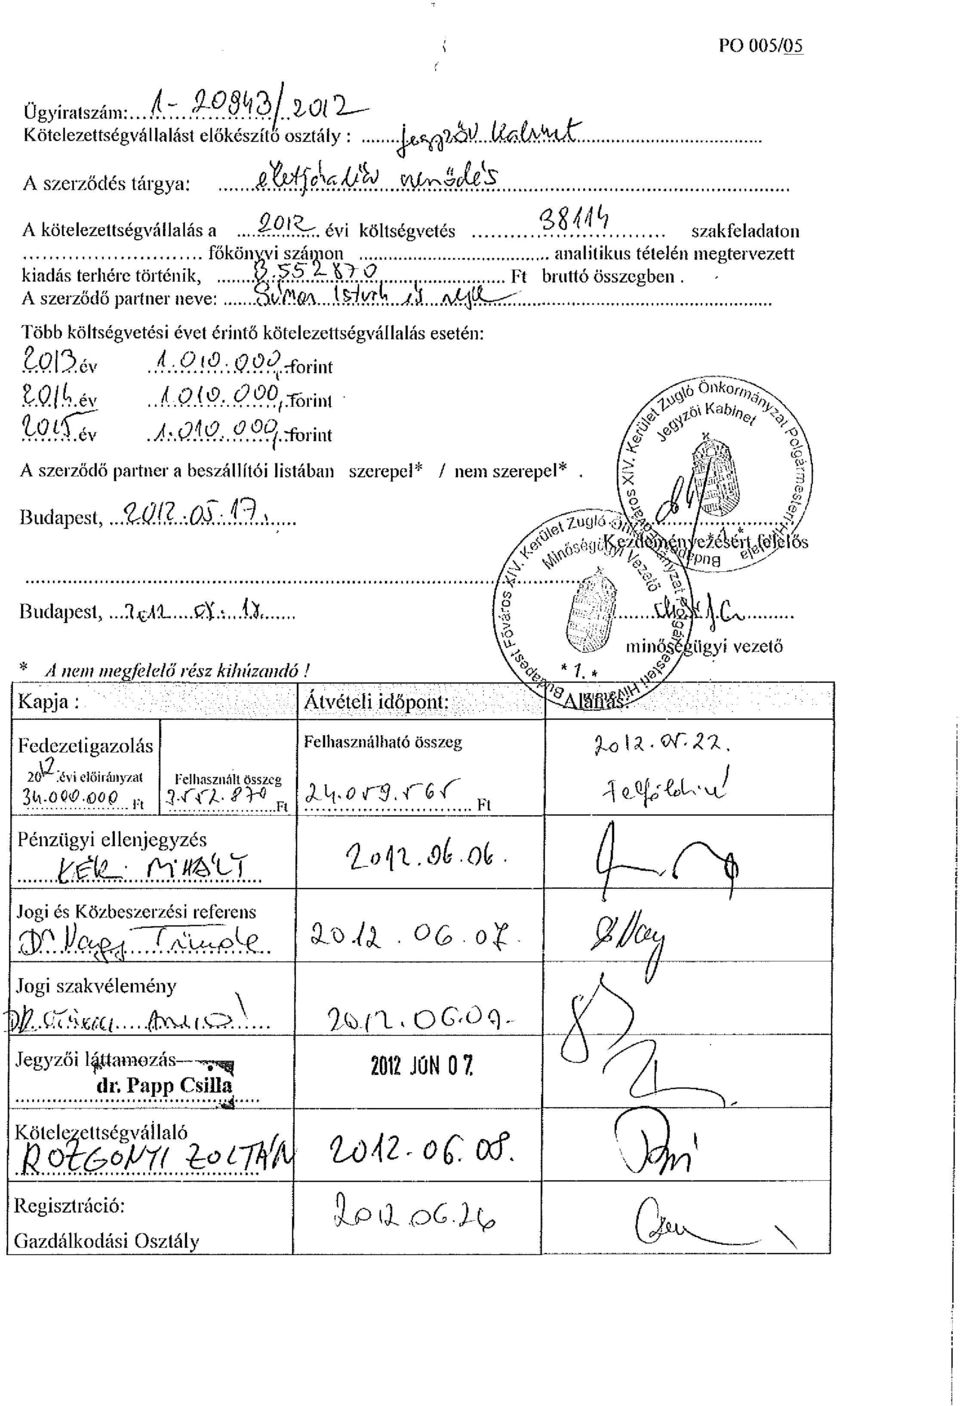 PO 005/05
Ügyiratszám: 1-20843/2012
Kötelezettségvállalást előkészítő osztály : Jegyzői Kabinet
A szerződés tárgya: életjáradéki szerződés
A kötelezettségvállalás a 2012. évi költségvetés 381114 szakfeladaton
főkönyvi számon analitikus tételén megtervezett
kiadás terhére történik, 3.552.870 Ft bruttó összegben .
A szerződő partner neve: Simon István és neje
Több költségvetési évet érintő kötelezettségvállalás esetén:
2013 év 1.010.000,-forint
2014. év 1.010.000,-forint
2015 év 1.010.000,-forint
A szerződő partner a beszállítói listában szerepel* / nem szerepel* .
Budapest, 2012.05.17.
Kezdeményezésért felelős
Budapest Főváros XIV. Kerület Zugló Önkormányzat Polgármesteri Hivatala
Jegyzői Kabinet
* 1. *
Budapest,
minőségügyi vezető
Budapest Főváros XIV. Kerület Zugló Önkormányzat Polgármesteri Hivatala
Minőségügyi Vezető
* 1. *
* A nem megfelelő rész kihúzandó !
Kapja : Átvételi időpont: Aláírás:
Fedezetigazolás Felhasználható összeg 2012.05.22.
2012 .évi előirányzat Felhasznált összeg
34.000.000 Ft 3.552.870 Ft 24.059.565 Ft
Pénzügyi ellenjegyzés
KÉK MIHÁLY 2012.06.06.
Jogi és Közbeszerzési referens
Dr Nagy Tünde 2012.06.07.
Jogi szakvélemény
2012.06.07.
Jegyzői láttamozás
dr. Papp Csilla 2012 JÚN 07.
Kötelezettségvállaló
ROZGONYI ZOLTÁN 2012.06.08.
Regisztráció: 2012.06.26
Gazdálkodási Osztály